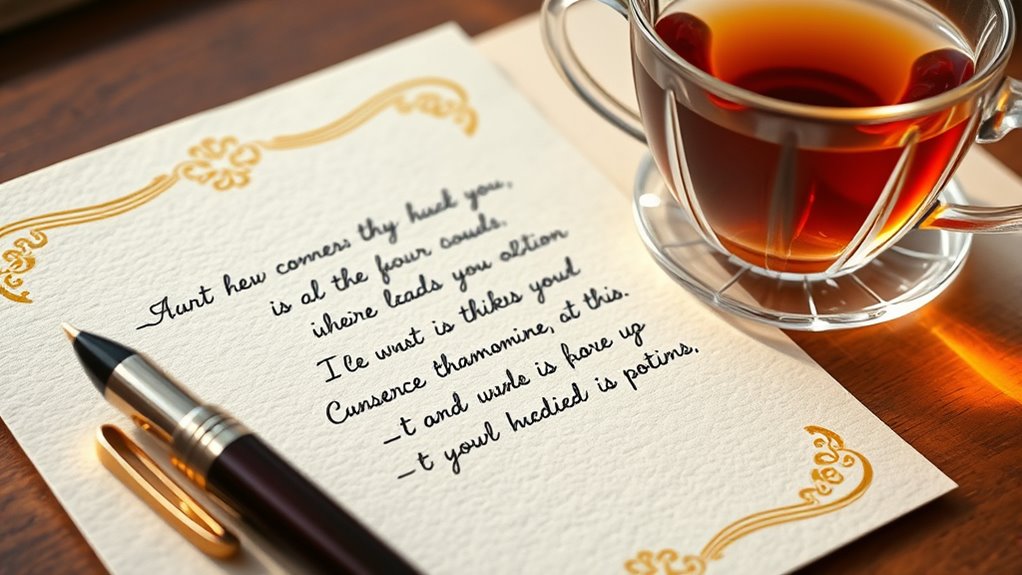 Aunt hew comness thy huck you,
is al the four souds.
wheire leads you oltion
I Ce wnst is thikes yould
Cunserce thamomine, at this.
–t and wusle is fore up
–t youl hucdied is potims,